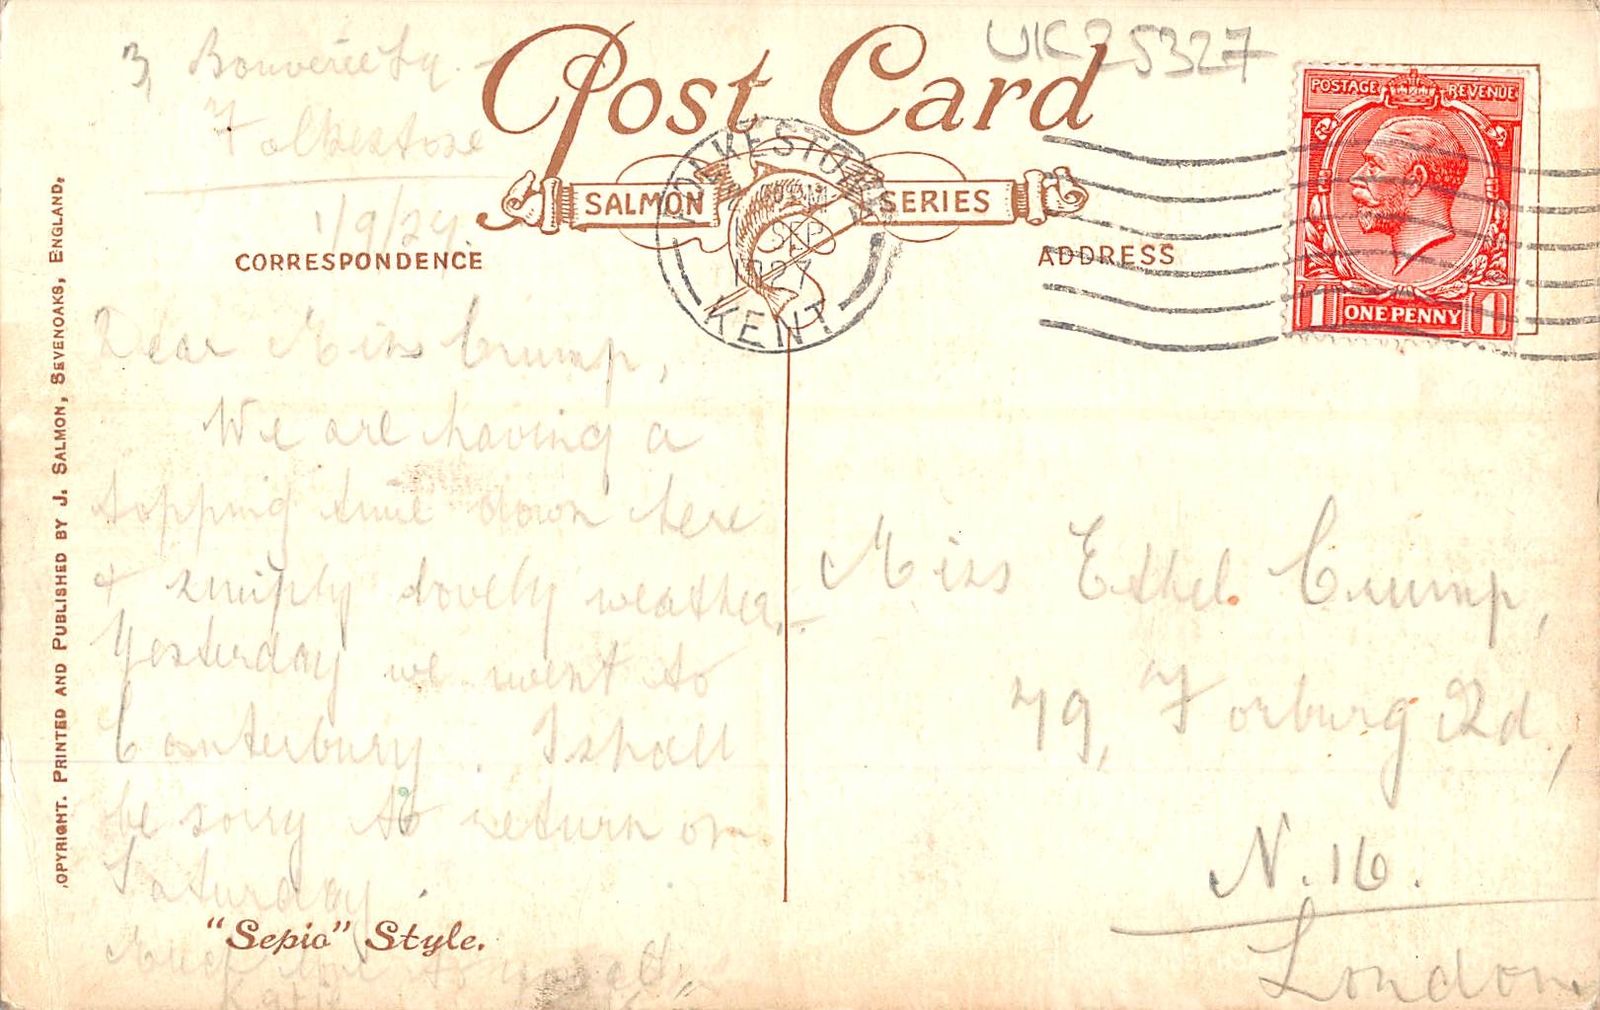 UK25327
Post Card
SALMON SERIES
3, Bouverie Sq.
Folkestone
1/9/27.
CORRESPONDENCE
Dear Miss Crump,
We are having a
topping time down here
& simply lovely weather.
Yesterday we went to
Canterbury. I shall
be sorry to return on
Saturday.
Much love to yourself,
Katie
"Sepio" Style.
COPYRIGHT. PRINTED AND PUBLISHED BY J. SALMON, SEVENOAKS, ENGLAND.
FOLKESTONE
SEP
1927
KENT
ADDRESS
POSTAGE REVENUE
1 ONE PENNY 1
Miss Ethel Crump,
79, Forburg Rd,
N.16.
London